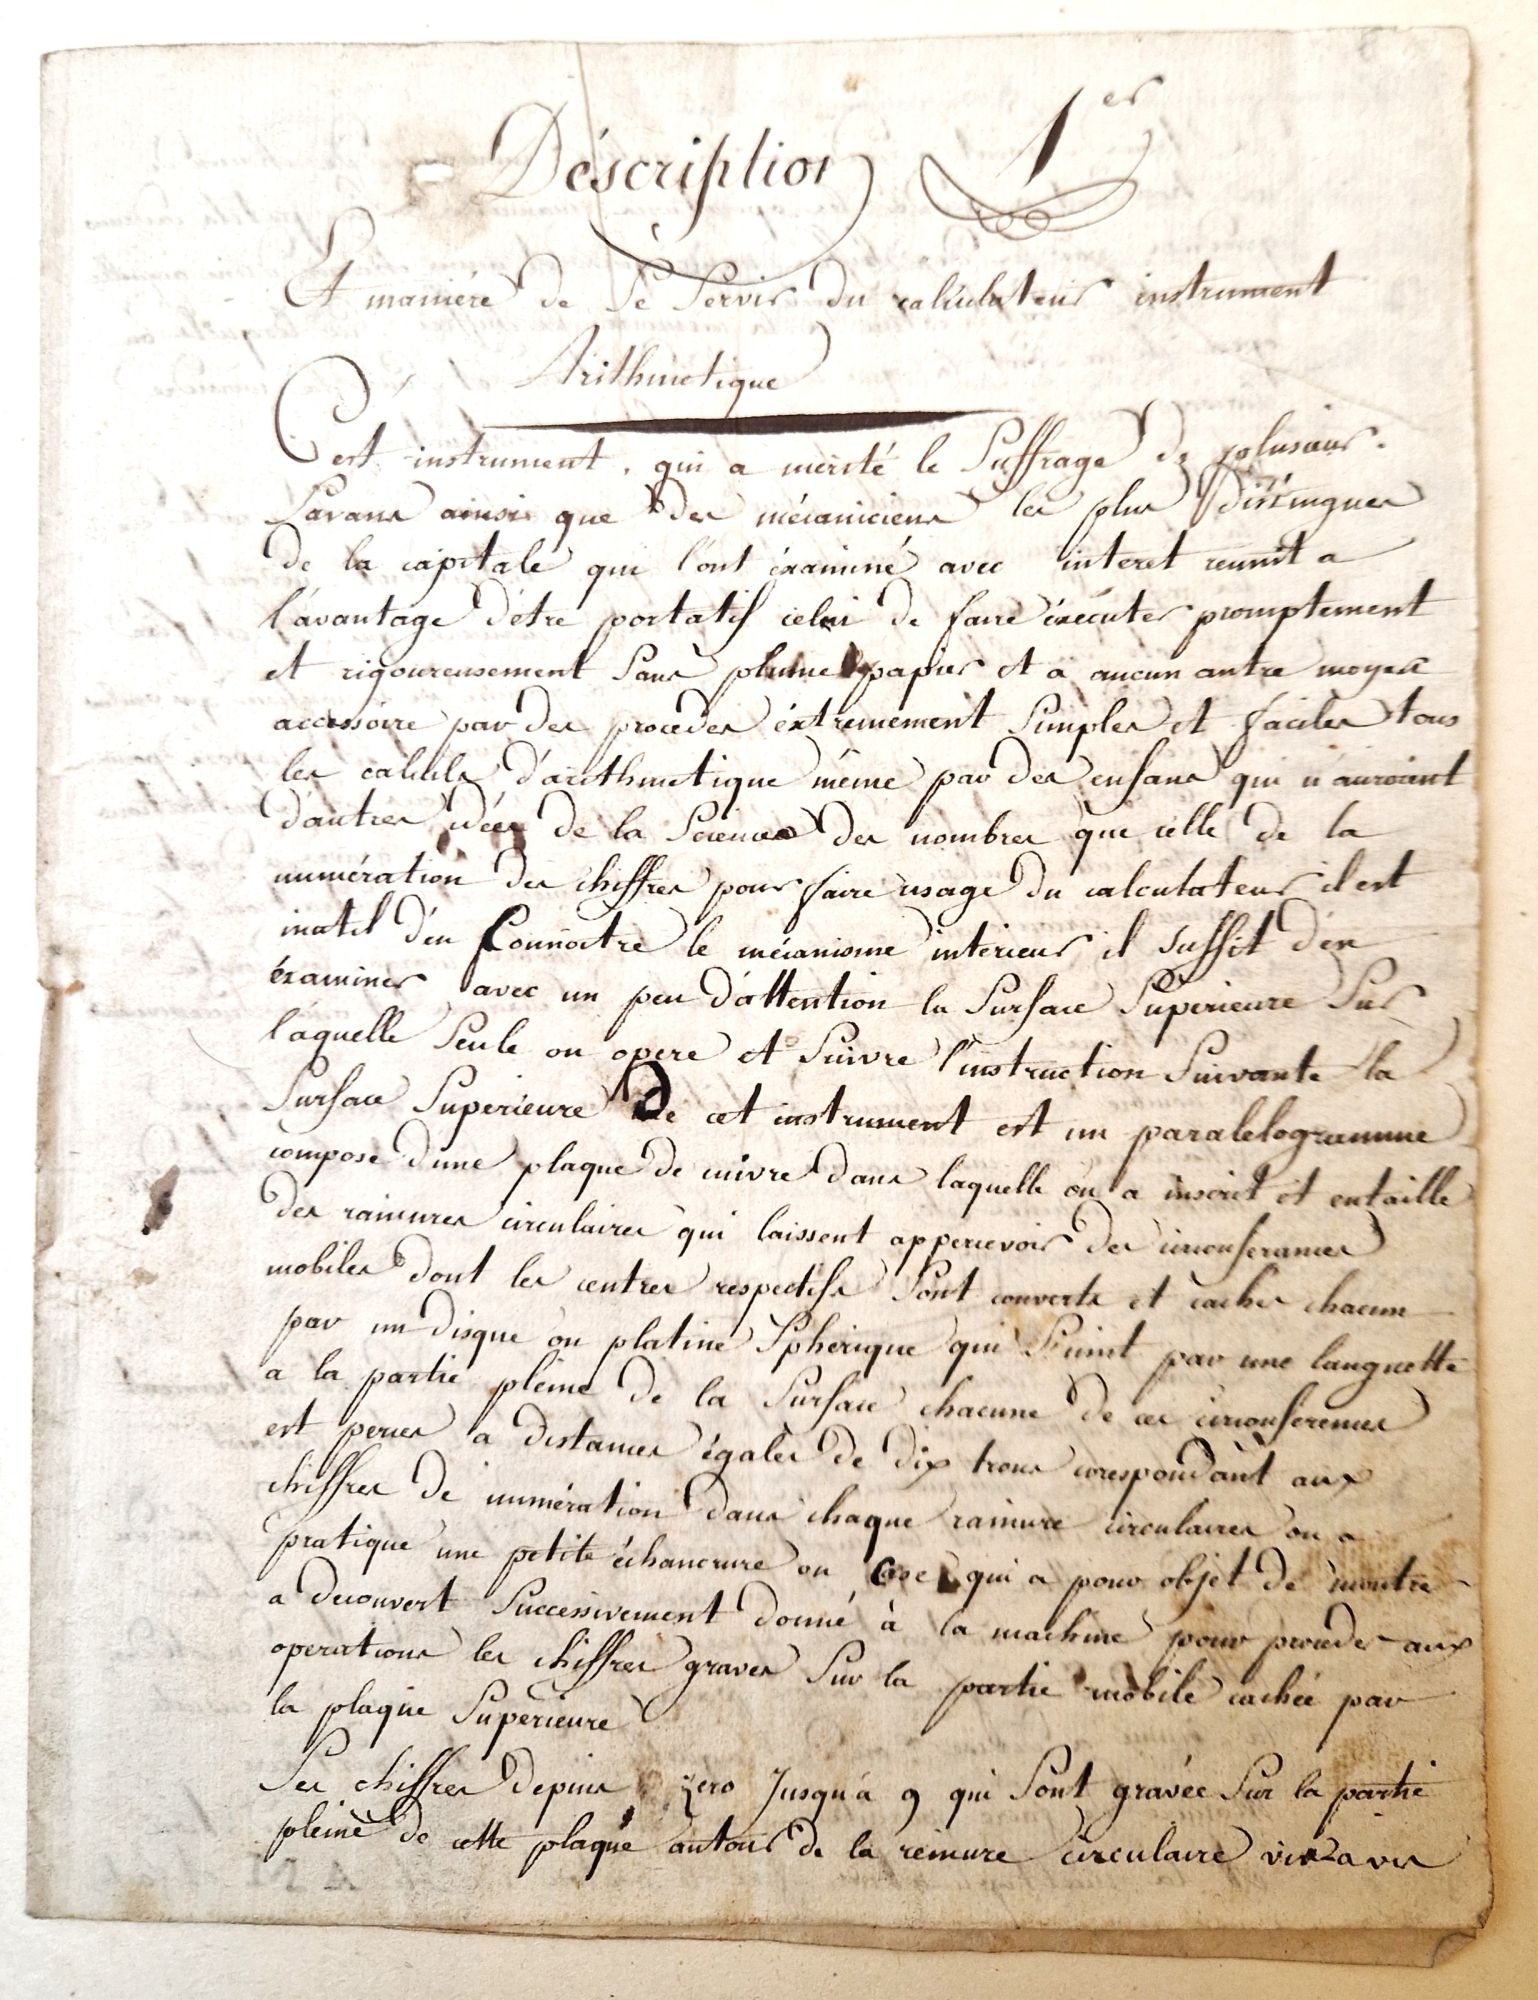 Déscription 1er
Et maniére de sé servir du calculateur instrument
Arithmetique
Cest instrument, qui a merité le suffrage de plusieurs
savans ainsi que des mécaniciens les plus distingues
de la capitale qui l'ont éxaminé avec interet reunit a
l'avantage d'étre portatif celui de faire éxécuter promptement
et rigoureusement sans plume papier et a aucun autre moyen
accessoire par des procedes éxtremement simples et faciles tous
les calculs d'arithmetique méme par des enfans qui n'auroient
d'autres idées de la science des nombres que celle de la
numération des chiffres pour faire usage du calculateur il est
inutil d'en connoitre le mécanisme intérieur il suffit d'en
éxaminer avec un peu d'attention la surface superieure sur
l'aquelle seule on opere et suivre l'instruction suivante la
surface superieure de cet instrument est un paralelogramme
composé d'une plaque de cuivre dans laquelle on a inscrit et entaille
des rainures circulaires qui laissent appercevoir des circonferances
mobiles dont les centres respectifs sont couverts et cachés chacun
par un disque ou platine spherique qui s'unit par une languette
a la partie pleine de la surface chacune de ces circonférences
est percée a distances égales de dix trous corespondant aux
chiffres de numération dans chaque rainure circulaires on a
pratique une petite échancrure ou case qui a pour objet de montre
a decouvert successivement donné à la machine pour proceder aux
operations les chiffres graves sur la partie mobile cachée par
la plaque supérieure
Les chiffres depuis zero jusqu'a 9 qui sont gravée sur la partie
pleine de cette plaque autour de la reinure circulaire vis a vis